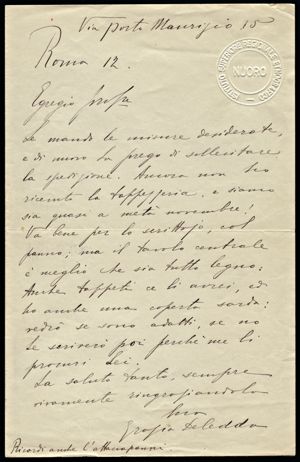 Via Porto Maurizio 15
Roma 12.
ISTITUTO SUPERIORE REGIONALE ETNOGRAFICO
NUORO
Egregio prof.re
Le mando le misure desiderate,
e di nuovo la prego di sollecitare
la spedizione. Ancora non ho
ricevuto la tappezzeria, e siamo
già quasi a metà novembre!
Va bene per lo scrittojo, col
panno; ma il tavolo centrale
è meglio che sia tutto legno.
Anche tappeti ce li avrei, ed
ho anche una coperta sarda:
vedrò se sono adatti, se no
Le scriverò poi perché me li
procuri Lei.
La saluto tanto, sempre
vivamente ringraziandola
Sua
Grazia Deledda
Ricordi anche l'attaccapanni.